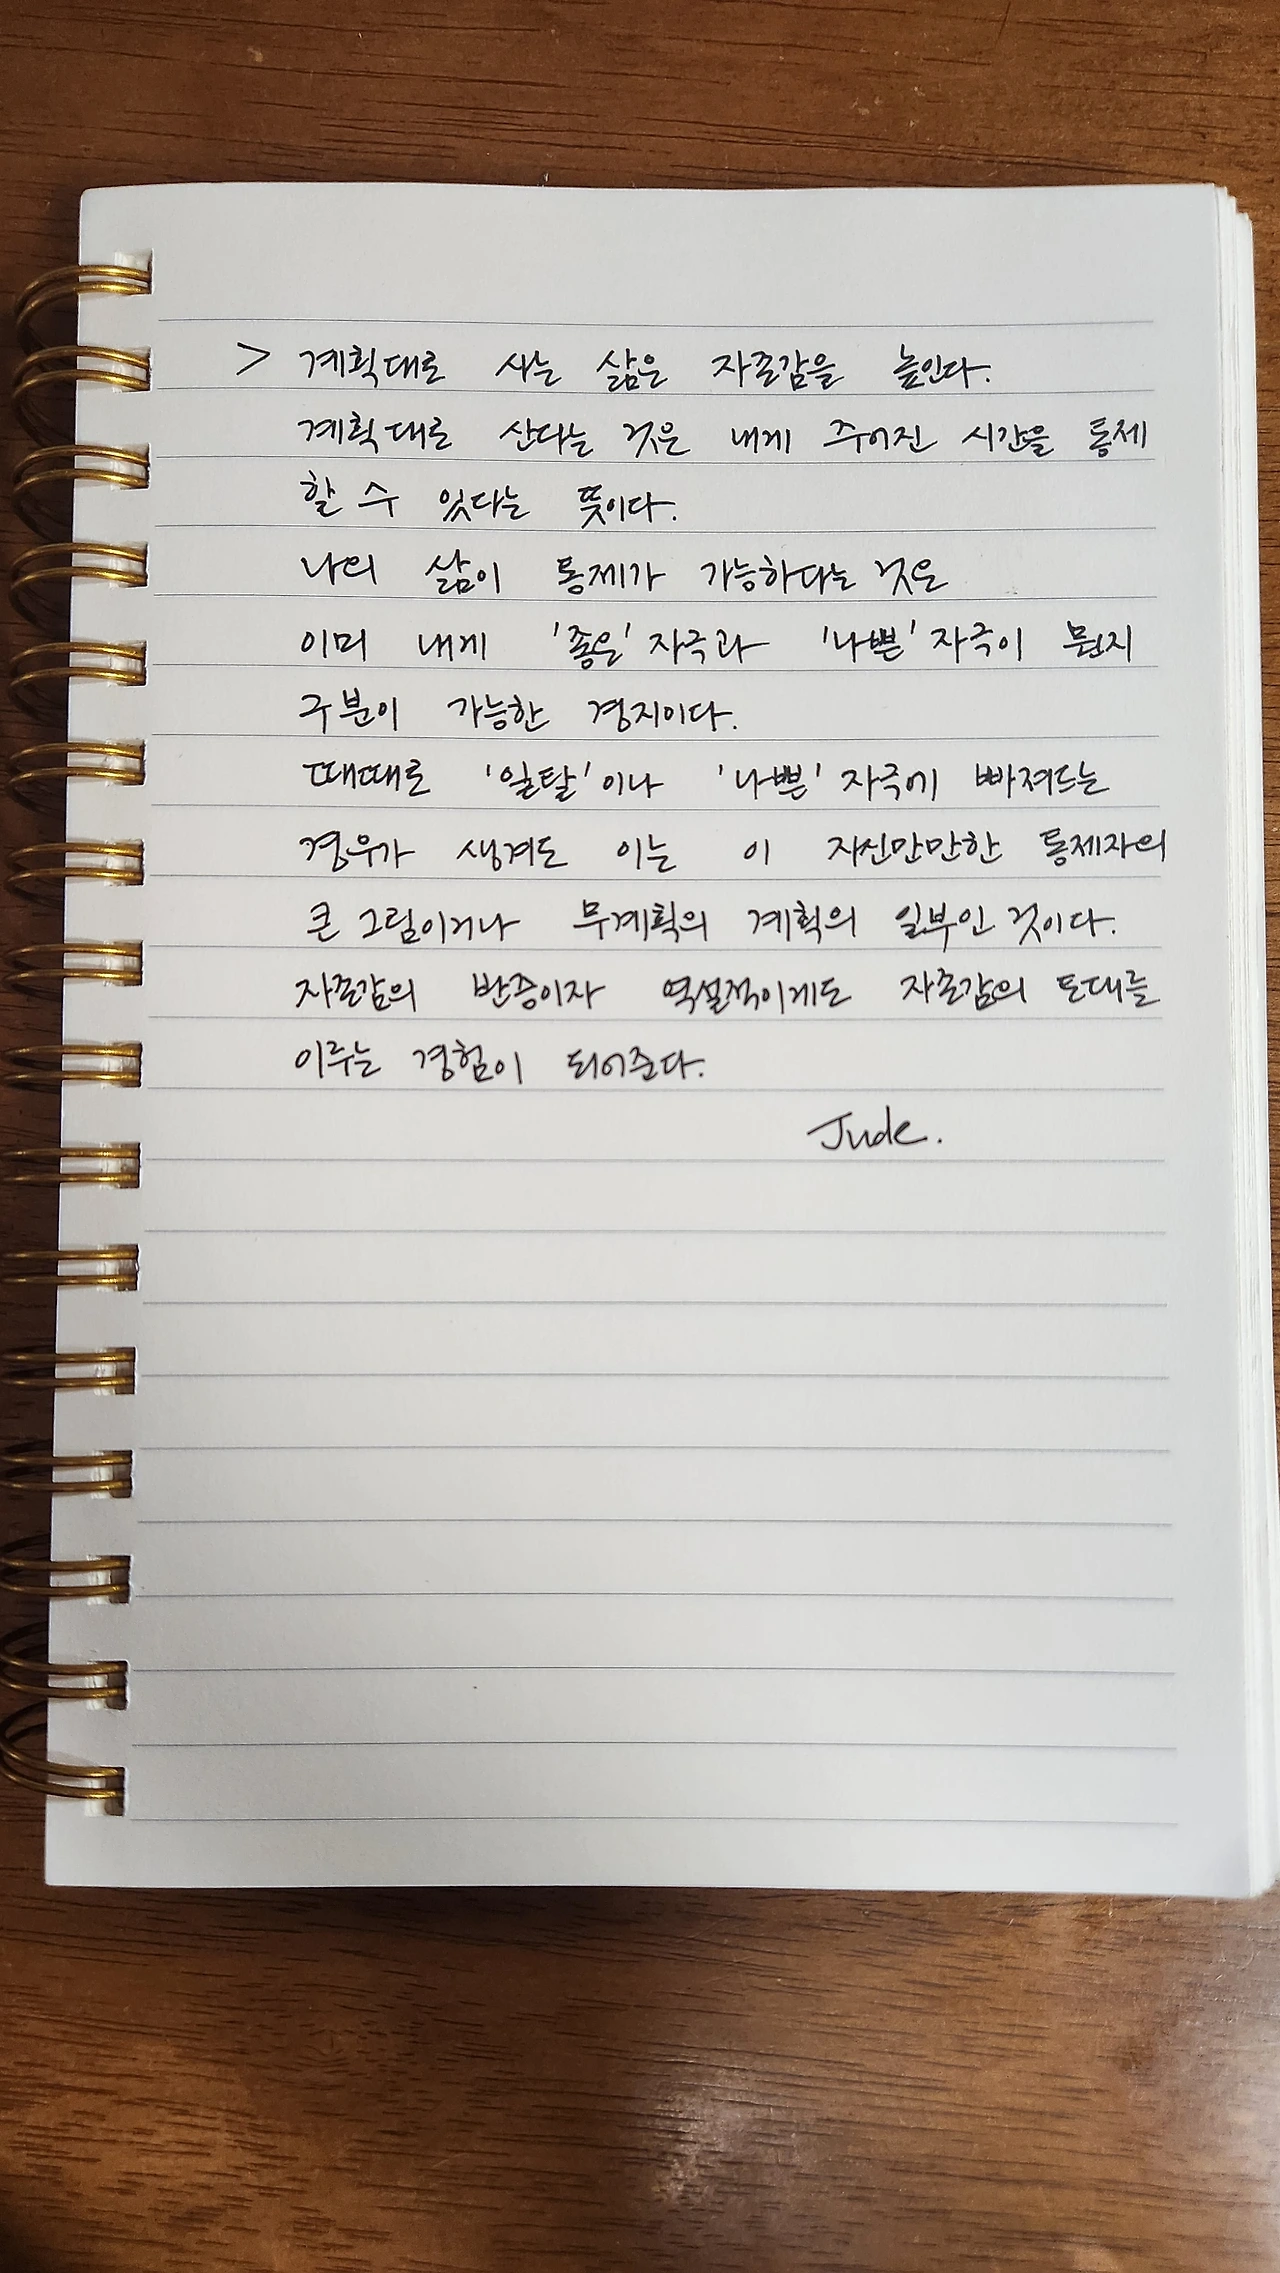 > 계획대로 사는 삶은 자존감을 높인다.
계획대로 산다는 것은 내게 주어진 시간을 통제
할 수 있다는 뜻이다.
나의 삶이 통제가 가능하다는 것은
이미 내게 '좋은' 자극과 '나쁜' 자극이 뭔지
구분이 가능한 경지이다.
때때로 '일탈'이나 '나쁜' 자극에 빠져드는
경우가 생겨도 이는 이 자신만만한 통제자의
큰 그림이거나 무계획의 계획의 일부인 것이다.
자존감의 반증이자 역설적이게도 자존감의 토대를
이루는 경험이 되어준다.
Jude.